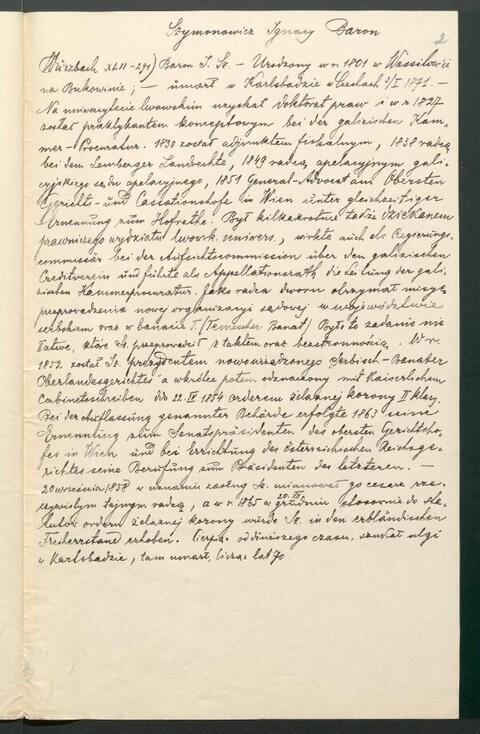 Szymonowicz Ignacy Baron
2
Wurzbach XLII-291) Baron I. Sz. – Urodzony w r. 1801 w Wassilowie
na Bukowinie; – umarł w Karlsbadzie w Czechach 3/I 1871. –
Na uniwersytecie lwowskim uzyskał doktorat praw i w r. 1827
został praktykantem konceptowym bei der galizischen Kam-
mer-Procuratur. 1830 został adjunktem fiskalnym, 1838 radcą
bei dem Lemberger Landrechte, 1849 radcą apelacyjnym gali-
cyjskiego sądu apelacyjnego, 1851 General-Advocat am Obersten
Gerichts- und Cassationshofe in Wien unter gleichzeitiger
Ernennung zum Hofrathe. Był kilkakrotnie także dziekanem
prawniczego wydziału lwowsk. uniwers., wirkte auch als Regierungs-
commissär bei der Aufsichtscommission über den galizischen
Creditverein und führte als Appellationsrath die Leitung der gali-
zischen Kammerprocuratur. Jako radca dworu otrzymał misyę
przeprowadzenia nowej organizacyi sądowej w województwie
serbskiem oraz w banacie T. (Temescher Banat) Było to zadanie nie
łatwe, które Sz. przeprowadził z taktem oraz bezstronnością. W r.
1852 został Sz. prezydentem nowourządzonego „Serbisch-Banater
Oberlandesgerichtes" a wkrótce potem odznaczony mit Kaiserlichem
Cabinetsschreiben ddo 22. IV 1854 orderem żelaznej korony II klasy.
Bei der Auflassung genannter Behörde erfolgte 1863 seine
Ernennung zum Senatspräsidenten des obersten Gerichtsho-
fes in Wien und bei Errichtung des österreichischen Reichsge-
richtes seine Berufung zum Präsidenten des letzteren. –
20 września 1858 w uznaniu zasług Sz. mianował go cesarz rze-
czywistym tajnym radcą, a w r. 1865 w grudniu stosownie do sta-
20.go
tutów orderu żelaznej korony wurde Sz. in den erbländischen
Freiherrstand erhoben. Cierpiąc od dłuższego czasu, szukał ulgi
w Karlsbadzie, tam umarł, licząc lat 70.